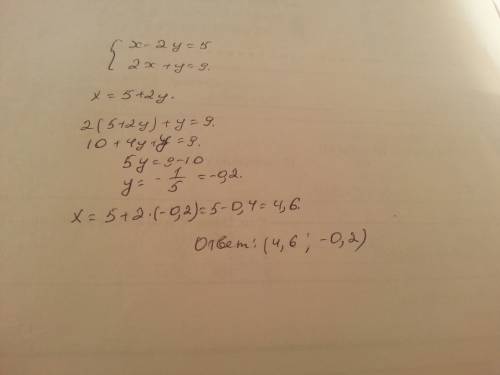 { x - 2y = 5
2x + y = 9.
x = 5 + 2y.
2(5+2y) + y = 9.
10 + 4y + y = 9.
5y = 9 - 10
y = - 1/5 = -0,2.
x = 5 + 2·(-0,2) = 5 - 0,4 = 4,6.
Ответ: (4,6 ; -0,2)